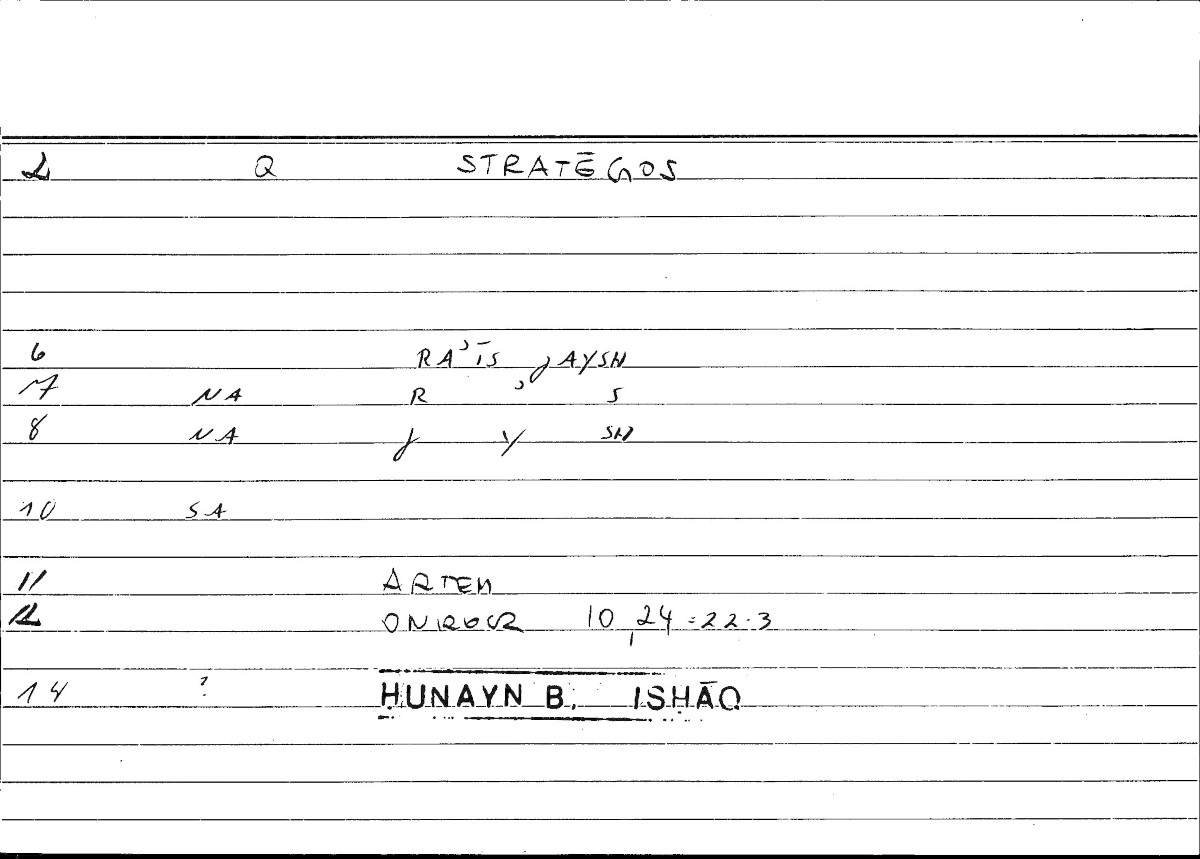 2 Q STRATĒGOS
6 RAʾĪS JAYSH
7 NA R ʾ S
8 NA J Y SH
10 SA
11 ARTEM
12 ONIROCR 10,24=22.3
14 ? ḤUNAYN B. ISḤĀQ